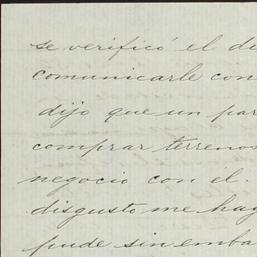 se verificó el du
comunicarle con
dijo que un par
comprar terrenos
negocio con el.
disgusto me hay
pude sin emba